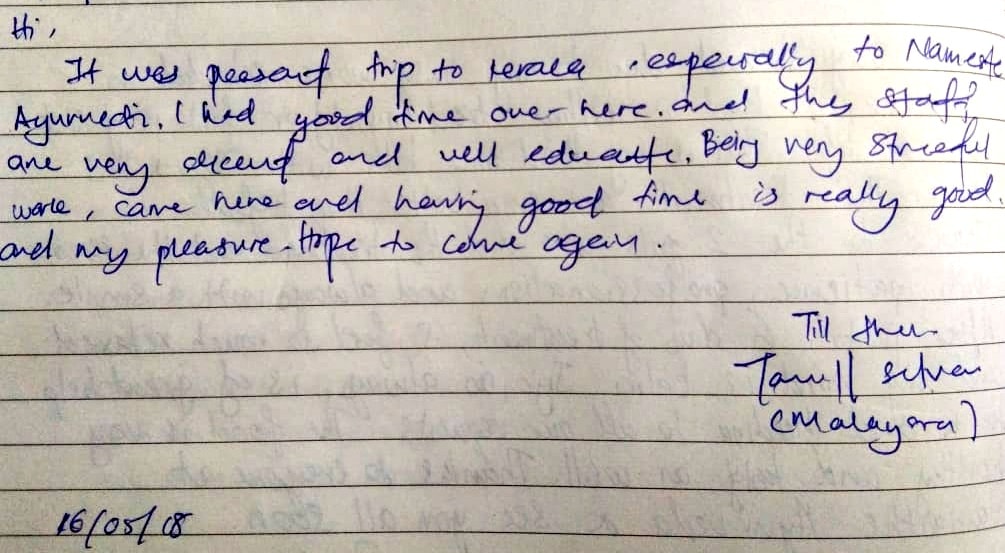 Hi,
It was peasant trip to kerala. especially to Nameste
Ayurvedi. I had good time over here. and they staff,
are very deceent and well educatte. Being very Stressful
work, came here and having good time is really good.
and my pleasure. Hope to come again.
Till then.
Tamill selvan
(Malaysia)
16/05/18